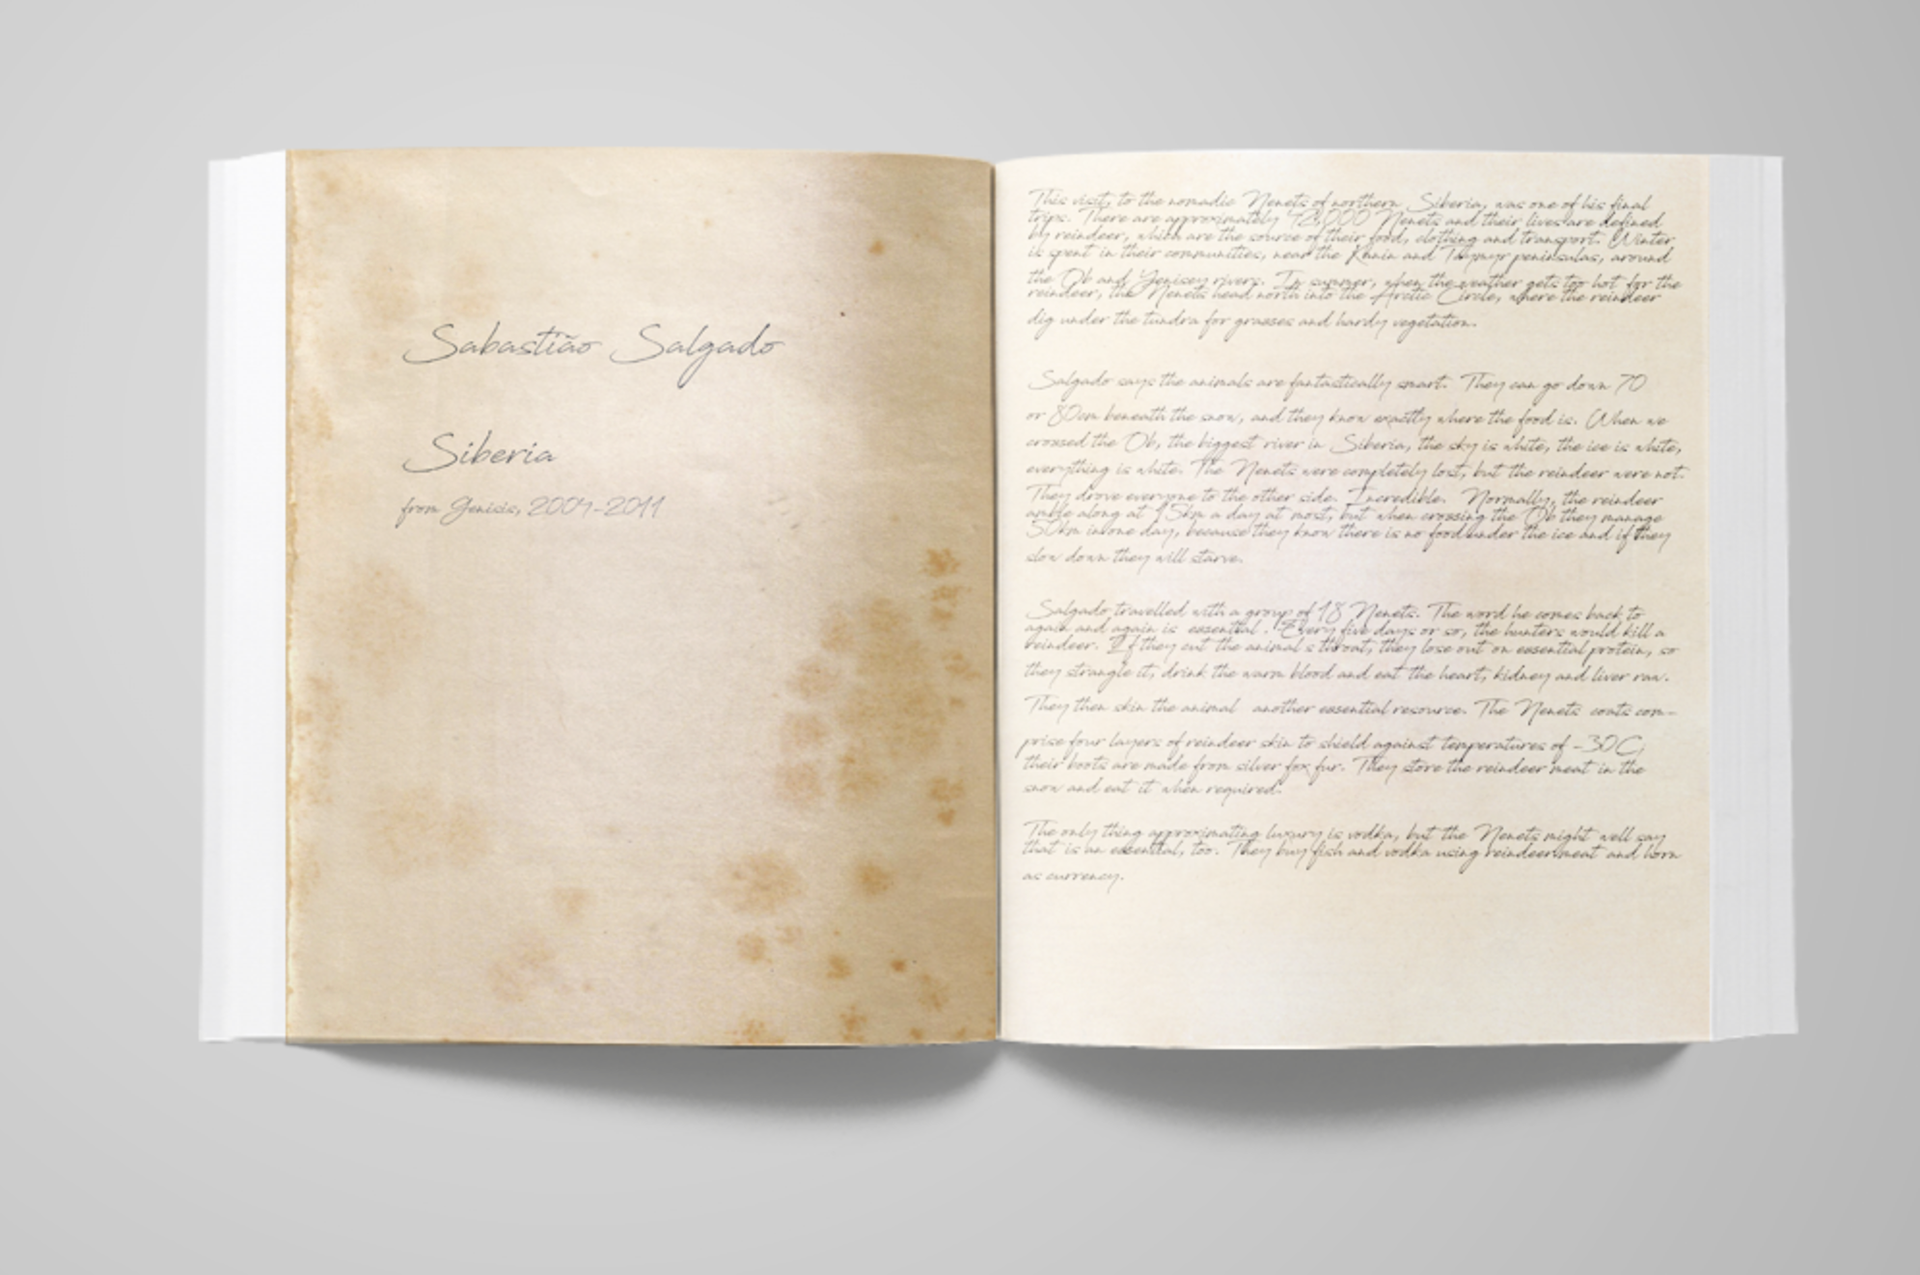 Sabastião Salgado
Siberia
from Genisis, 2004-2011
This visit, to the nomadic Nenets of northern Siberia, was one of his final
trips. There are approximately 42,000 Nenets and their lives are defined
by reindeer, which are the source of their food, clothing and transport. Winter
is spent in their communities, near the Kanin and Taymyr peninsulas, around
the Ob and Yenisey rivers. In summer, when the weather gets too hot for the
reindeer, the Nenets head north into the Arctic Circle, where the reindeer
dig under the tundra for grasses and hardy vegetation.
Salgado says the animals are fantastically smart. They can go down 70
or 80cm beneath the snow, and they know exactly where the food is. When we
crossed the Ob, the biggest river in Siberia, the sky is white, the ice is white,
everything is white. The Nenets were completely lost, but the reindeer were not.
They drove everyone to the other side. Incredible. Normally, the reindeer
amble along at 15km a day at most, but when crossing the Ob they manage
50km in one day, because they know there is no food under the ice and if they
slow down they will starve.
Salgado travelled with a group of 18 Nenets. The word he comes back to
again and again is essential. Every five days or so, the hunters would kill a
reindeer. If they cut the animal s throat, they lose out on essential protein, so
they strangle it, drink the warm blood and eat the heart, kidney and liver raw.
They then skin the animal another essential resource. The Nenets coats com-
prise four layers of reindeer skin to shield against temperatures of -30C;
their boots are made from silver fox fur. They store the reindeer meat in the
snow and eat it when required.
The only thing approximating luxury is vodka, but the Nenets might well say
that is an essential, too. They buy fish and vodka using reindeer meat and horn
as currency.